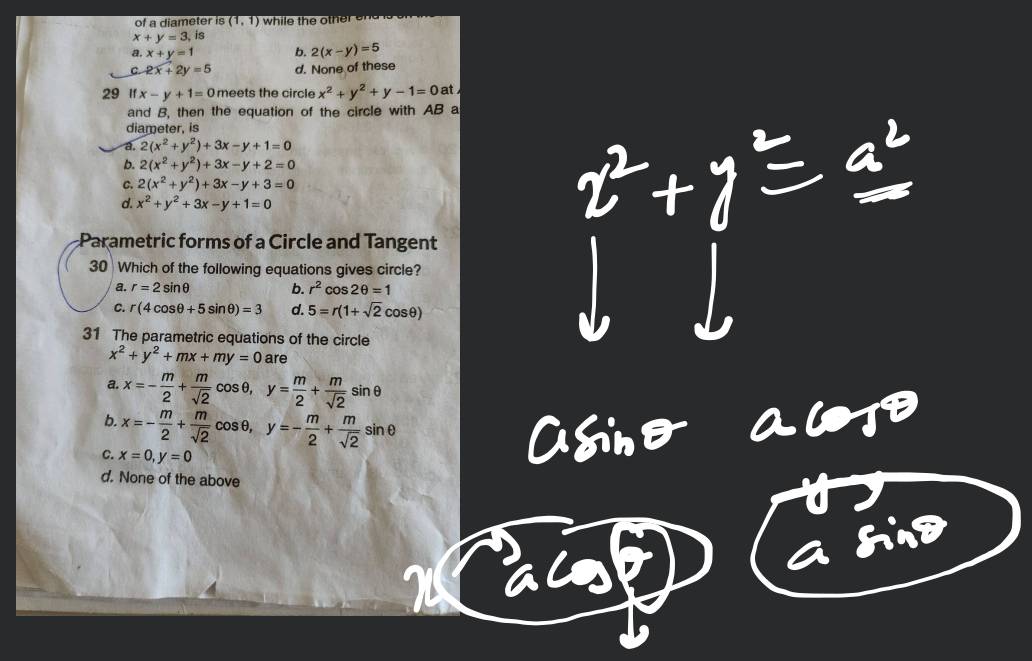 of a diameter is (1, 1) while the other end is on the
x + y = 3, is
a. x + y = 1 b. 2(x − y) = 5
c. 2x + 2y = 5 d. None of these
29 If x − y + 1 = 0 meets the circle x² + y² + y − 1 = 0 at
and B, then the equation of the circle with AB a
diameter, is
a. 2(x² + y²) + 3x − y + 1 = 0
b. 2(x² + y²) + 3x − y + 2 = 0
c. 2(x² + y²) + 3x − y + 3 = 0
d. x² + y² + 3x − y + 1 = 0
Parametric forms of a Circle and Tangent
30 Which of the following equations gives circle?
a. r = 2 sin θ b. r² cos 2θ = 1
c. r(4 cos θ + 5 sin θ) = 3 d. 5 = r(1 + √2 cos θ)
31 The parametric equations of the circle
x² + y² + mx + my = 0 are
a. x = −m/2 + m/√2 cos θ, y = m/2 + m/√2 sin θ
b. x = −m/2 + m/√2 cos θ, y = −m/2 + m/√2 sin θ
c. x = 0, y = 0
d. None of the above
x² + y² = a²
a sin θ a cos θ
y
x a cos θ a sin θ